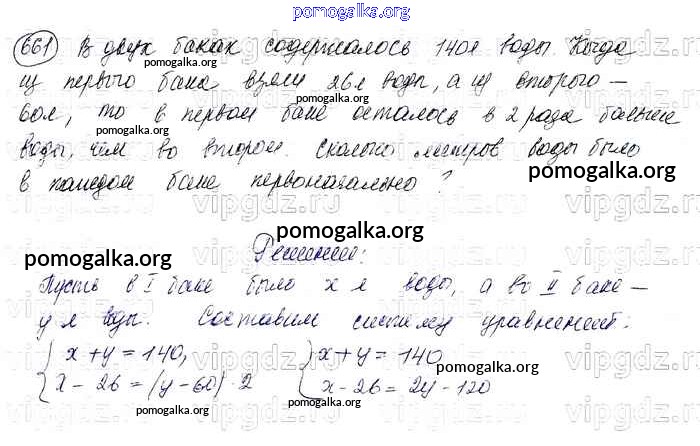 pomogalka.org
661 В двух баках содержалось 140л воды. Когда
из первого бака взяли 26л воды, а из второго —
pomogalka.org
60л, то в первом баке осталось в 2 раза больше
pomogalka.org
воды, чем во втором. Сколько литров воды было
pomogalka.org
в каждом баке первоначально?
pomogalka.org
Решение:
pomogalka.org
Пусть в I баке было х л воды, а во II баке —
у л воды. Составим систему уравнений:
pomogalka.org
х + у = 140, х + у = 140
х − 26 = (у − 60) · 2 х − 26 = 2у − 120
pomogalka.org pomogalka.org
vipgdz.ru